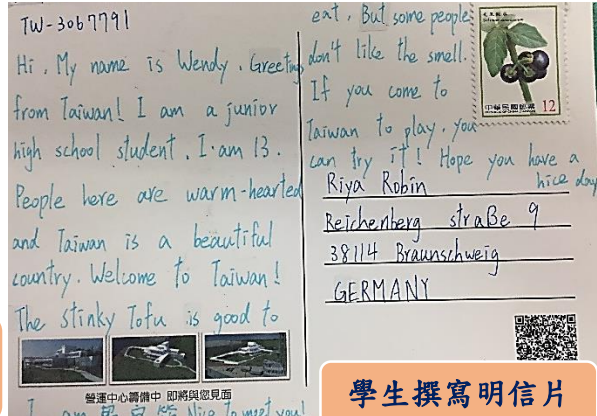 TW-3067791
Hi. My name is Wendy. Greeting
from Taiwan! I am a junior
high school student. I am 13.
People here are warm-hearted
and Taiwan is a beautiful
country. Welcome to Taiwan!
The stinky Tofu is good to
營運中心籌備中 即將與您見面
I am Nice to meet you!
eat. But some people
don't like the smell.
If you come to
Taiwan to play. you
can try it! Hope you have a
nice day
中華民國郵票
12
Riya Robin
Reichenberg straße 9
38114 Braunschweig
GERMANY
學生撰寫明信片